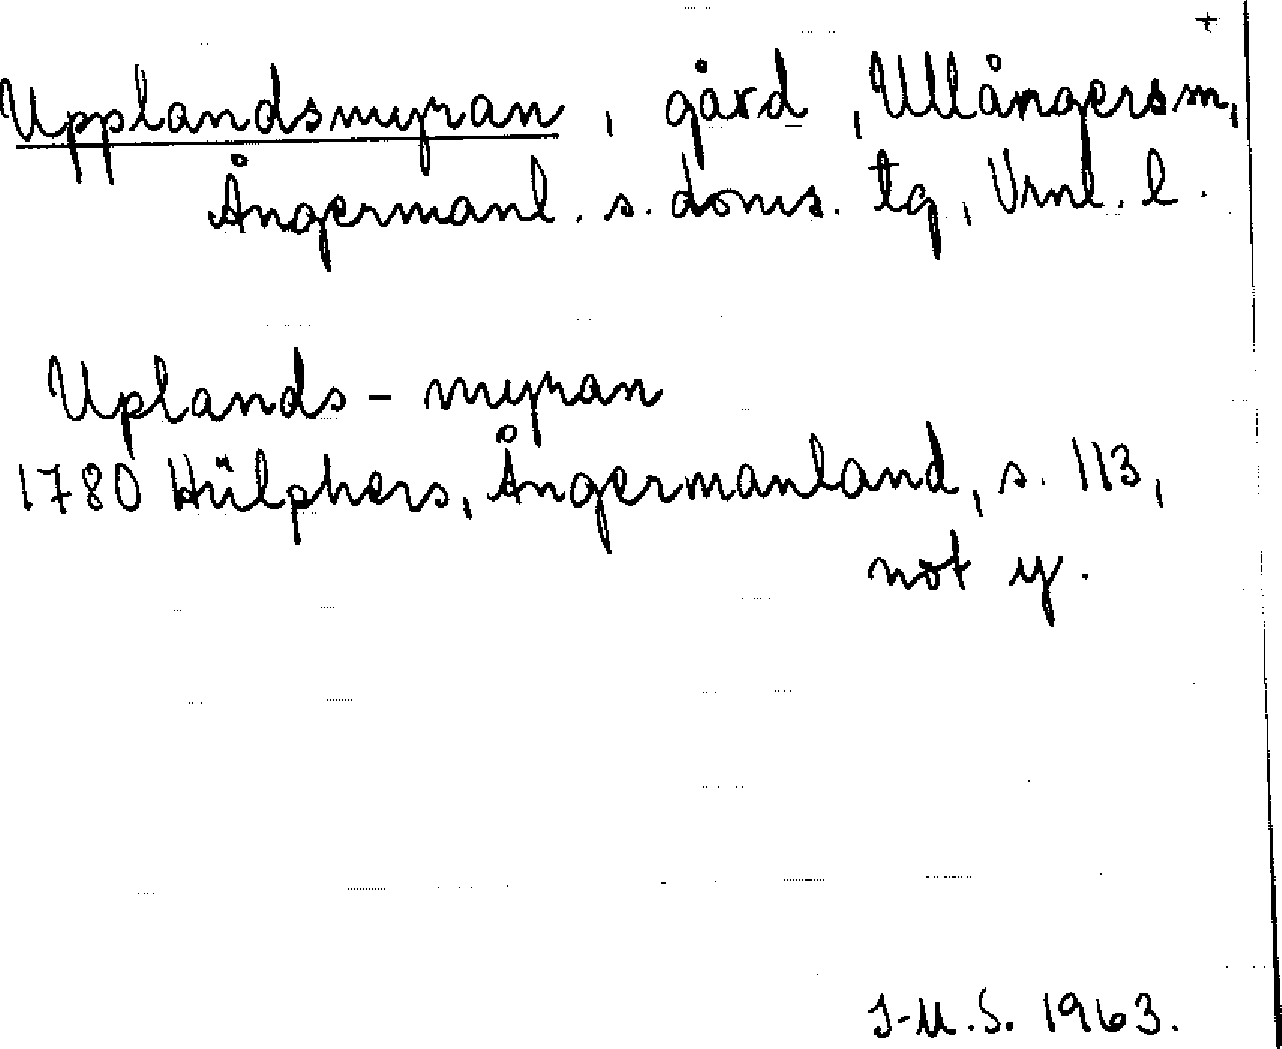 +
Upplandsmyran, gård, Ullångers sn,
Ångermanl. s. doms. tg, Vrnl. l.
Uplands-myran
1780 Hülphers, Ångermanland, s. 113,
not y.
I-M.S. 1963.